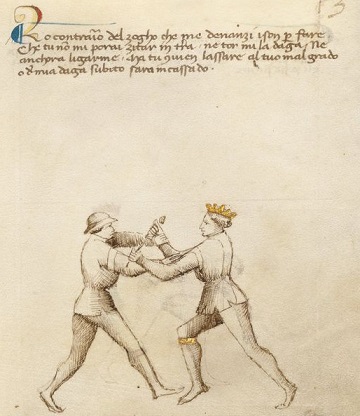 13
Lo contrario del zogho che me denanzi ison per fare
Che tu no mi porai zitar in tra ne tor mi la daga Ne
anchora ligarme Ma tu convien lassare al tuo mal grado
o d mia daga subito sarai ncassado